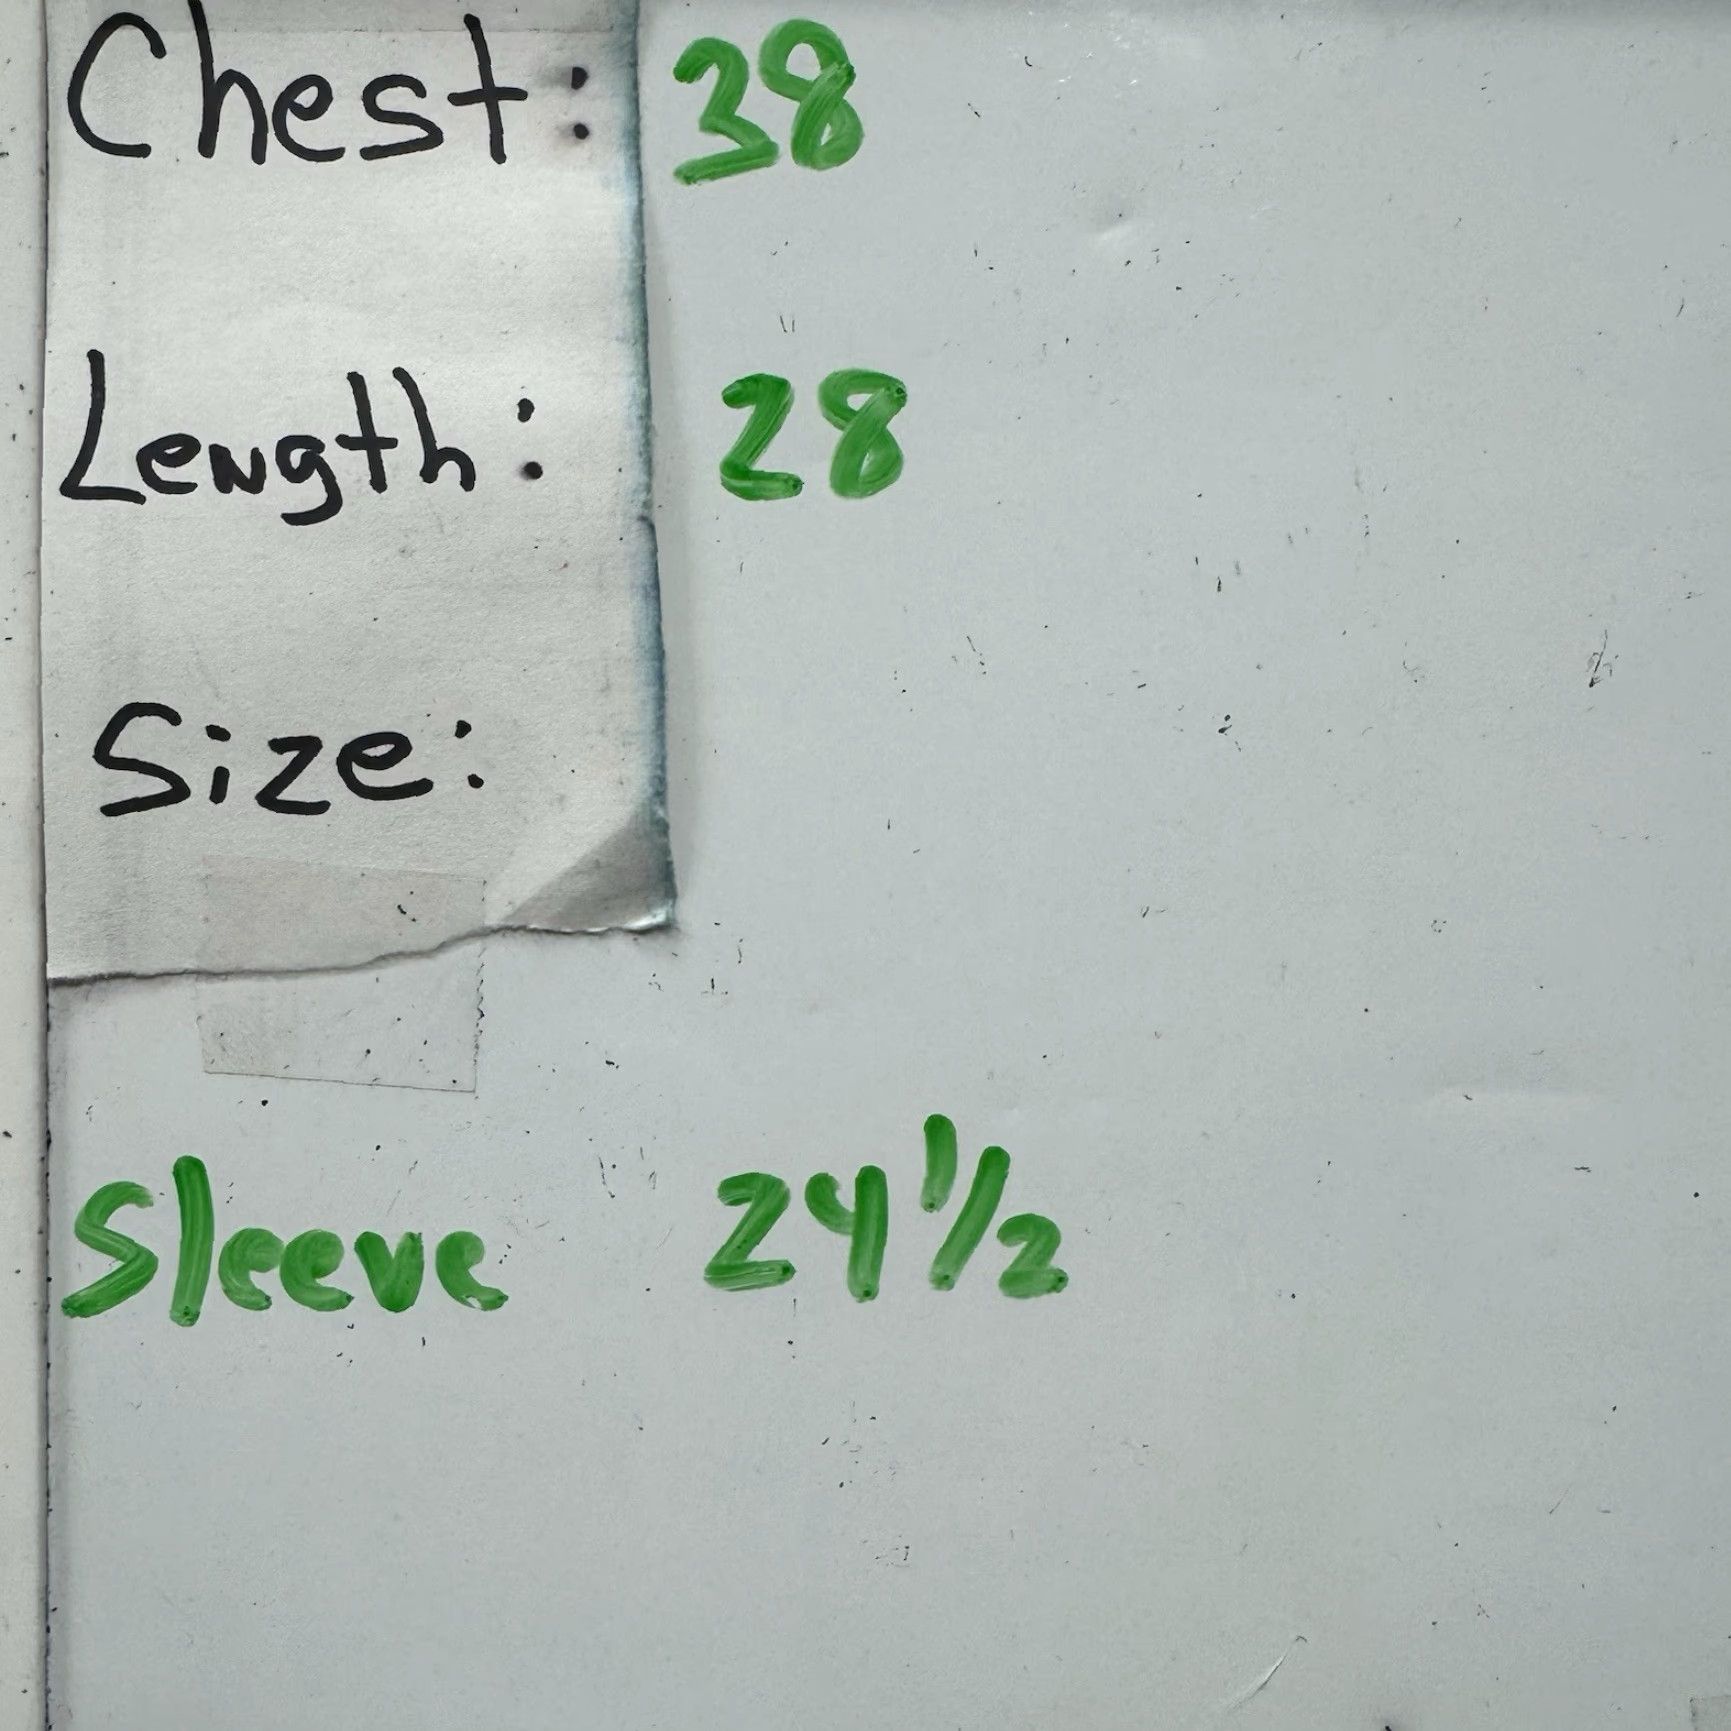 Chest: 38
Length: 28
Size:
Sleeve 24 1/2